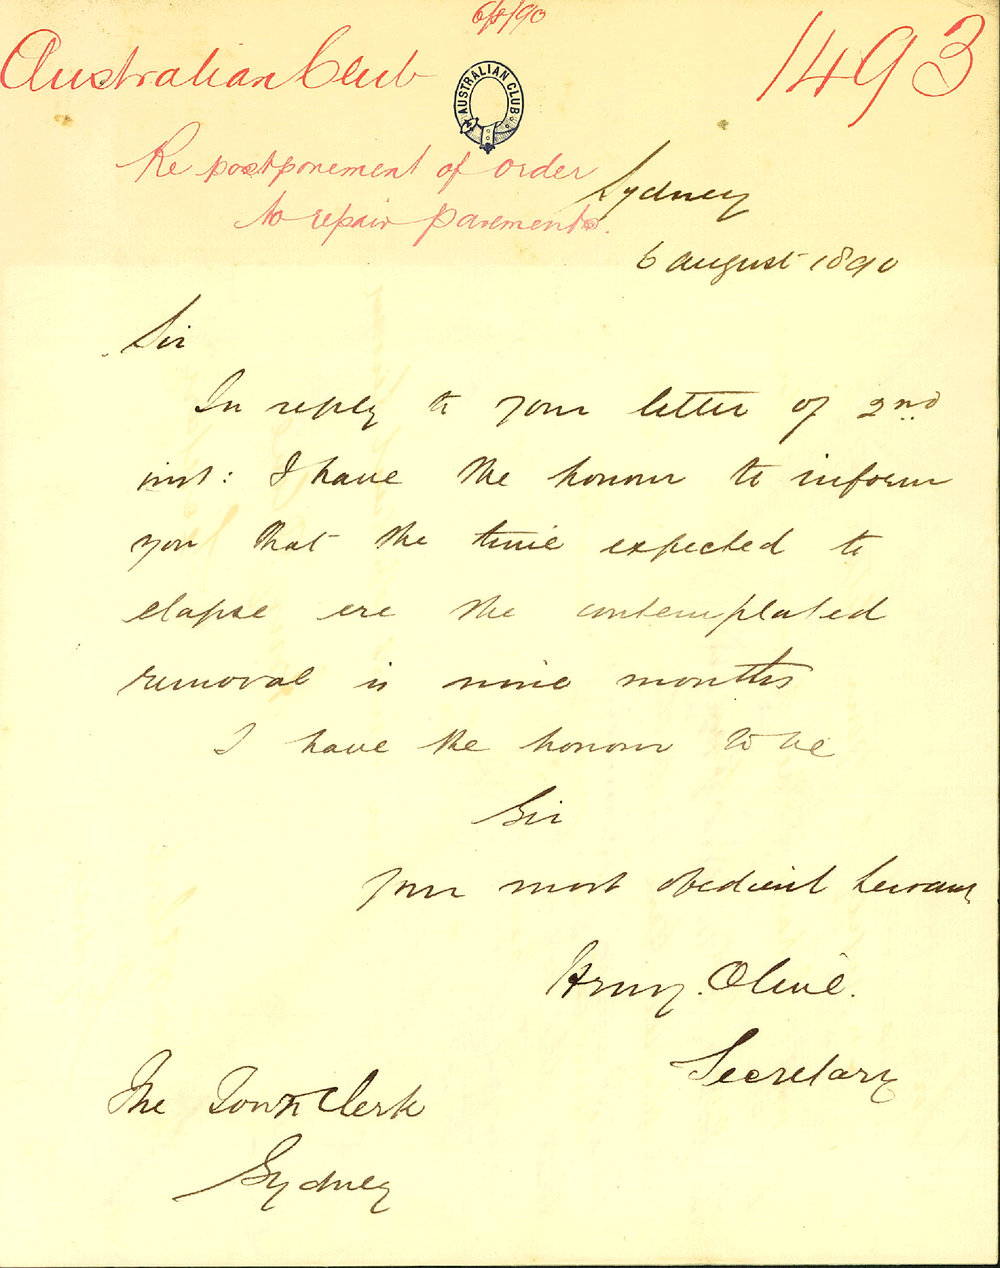 6/8/90
Australian Club
1493
AUSTRALIAN CLUB
Re postponement of order
to repair pavements.
Sydney
6 august 1890
Sir
In reply to your letter of 2nd
inst: I have the honour to inform
you that the time expected to
elapse ere the contemplated
removal is nine months
I have the honour to be
Sir
Your most obedient servant
Henry. Olive.
Secretary
The Town Clerk
Sydney